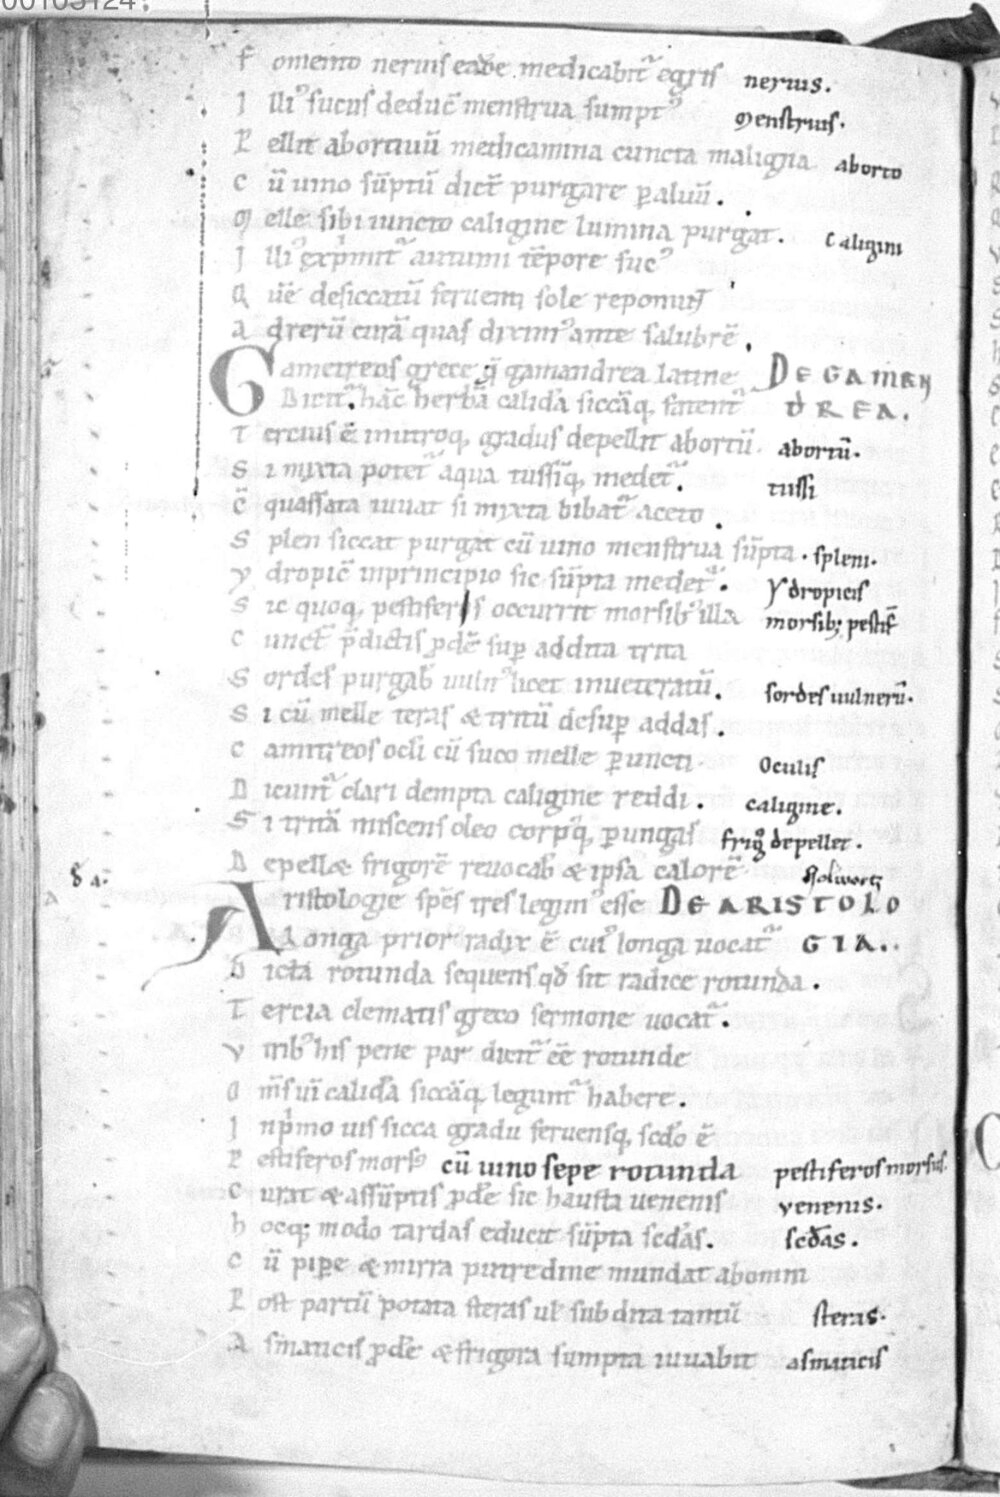 00103124.
F omento neruis eadē medicabit᷑ egris nerius.
I lli᷒ sucus deducᷓ menstrua sumpt᷒ Menstruis.
P ellit abortiuū medicamina cuncta maligna aborto
C ū uino sūptū dicit᷑ purgare p aluū.
M elle sibi iuncto caligine lumina purgat. Caligini
I lli᷒ exp̄mit᷑ autumni tēpore suc᷒
Q uē desiccatū feruenti sole reponunt
A drerū curā quas dixim᷒ ante salubrē.
G ametreos grece q̄ gamandrea latine DE GAMEN
Dicit᷑. hāc herbā calidā siccāq, fatent᷑ DREA.
T ercius ē in utroq, gradus depellit abortū. abortū.
S i mixta potet᷑ aqua tussiq, medet᷑. tussi
C̄ quassata iuuat si mixta bibat᷑ aceto.
S plen siccat purgat cū uino menstrua sūpta. spleni.
Y dropic̄ in principio sic sūpta medet᷑. Ydropicis
S ic quoq, pestiferis occurrit morsib᷒ illa morsib; pestif̄
C unct᷑ p̄dictis pdē sup addita trita
S ordes purgab̄ uuln᷑a licet inueteratū. sordes uulnerū.
S i cū melle teras & tritū desup addas.
C amitreos ocli cū suco melle puncti Oculis
D icunt᷑ clari dempta caligine reddi. caligine.
S i tritā miscens oleo corpq, pungas frig̊ depellet.
D epellæ frigorē reuocab̄ & ipsa calorē holwortz
A ristologie spēs tres legim᷒ esse DE ARISTOLO
Longa prior radix ē cui᷒ longa uocat᷑ GIA..
D icta rotunda sequens qđ sit radice rotunda.
T ercia clematis greco sermone uocat᷑.
V irib᷒ his pene par dicit᷑ eē rotunde
O m̄s uī calidā siccāq, legunt᷑ habere.
I n p̄mo uis sicca gradu feruensq, scđo ē
P estiferos mors᷒ cū uino sepe rotunda pestiferos morsus.
C urat & assūptis pdē sic hausta uenenis venenis.
H ocq; modo tardas educit sūpta scđas. scđas.
C ū pipe & mirra putredine mundat abomni
P ost partū potata steras ul subdita tantū steras.
A smaticis pdē & frigora sumpta iuuabit asmaticis